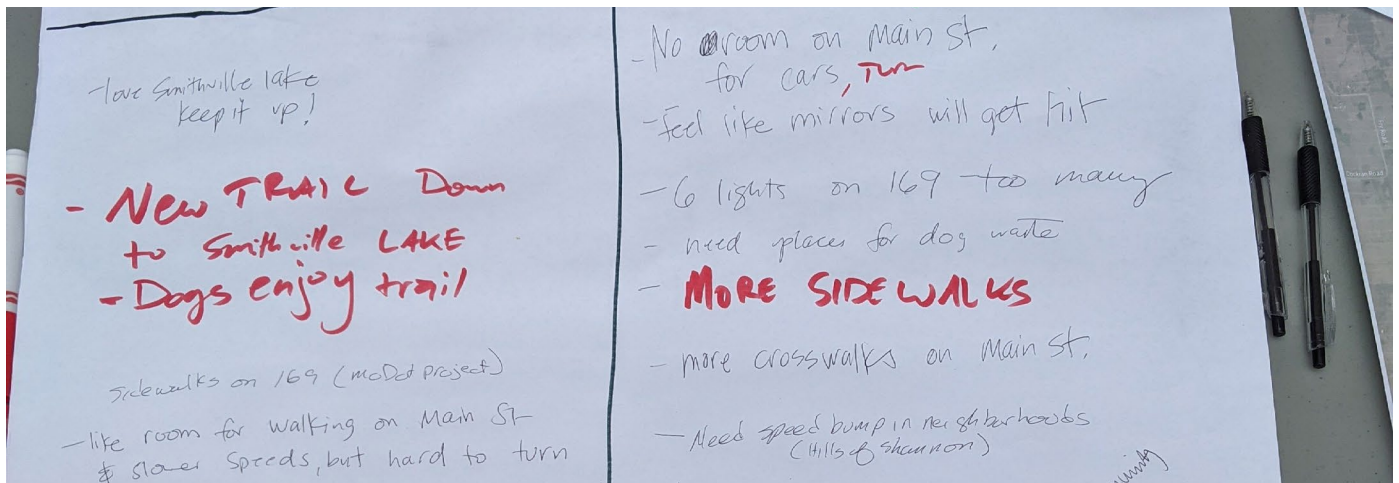 - love Smithville lake
keep it up!
- New TRAIL Down
to Smithville LAKE
- Dogs enjoy trail
Sidewalks on 169 (MoDot project)
- like room for walking on Main St
& slower speeds, but hard to turn
- No room on Main St.
for cars, Turn
- feel like mirrors will get hit
- 6 lights on 169 too many
- need places for dog waste
- MORE SIDEWALKS
- more crosswalks on Main St.
- Need speed bump in neighborhoods
(Hills of Shannon)